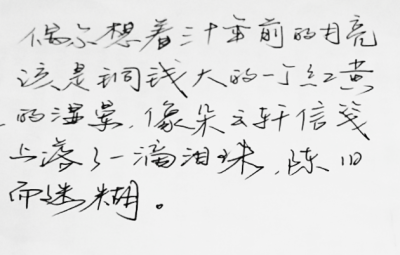 偶尔想着三十年前的月亮
该是铜钱大的一个红黄
的湿晕，像朵云轩信笺
上落了一滴泪珠，陈旧
而迷糊。